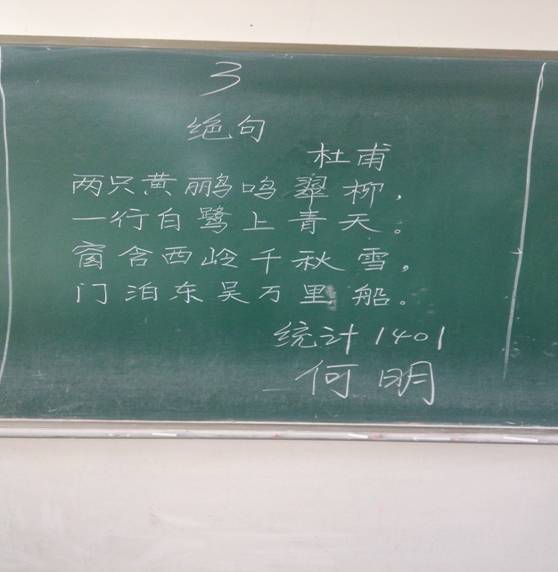 3
绝句
杜甫
两只黄鹂鸣翠柳,
一行白鹭上青天。
窗含西岭千秋雪,
门泊东吴万里船。
统计1401
何明